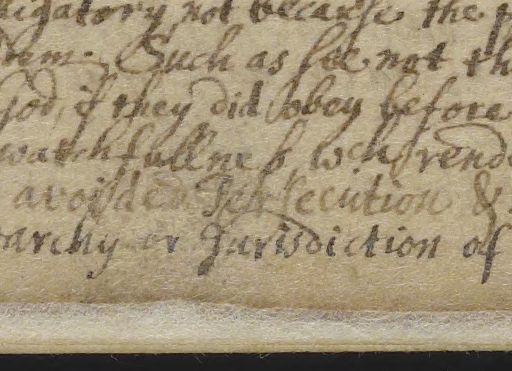 ligatory not because the
them. Such as see not th
God, if they did obey before
watchfullness wch rende
avoided Persecution &
archy or Jurisdiction of